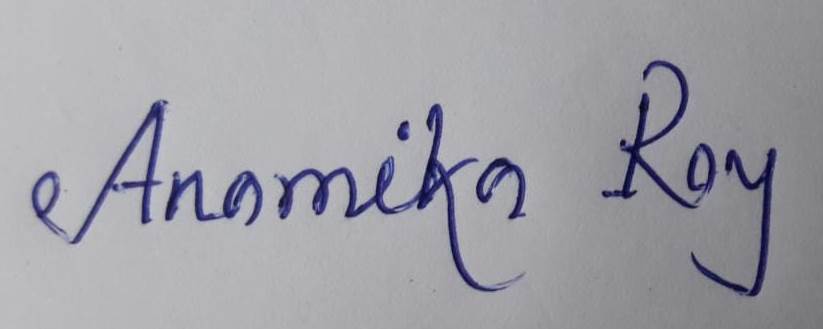 Anamika Roy